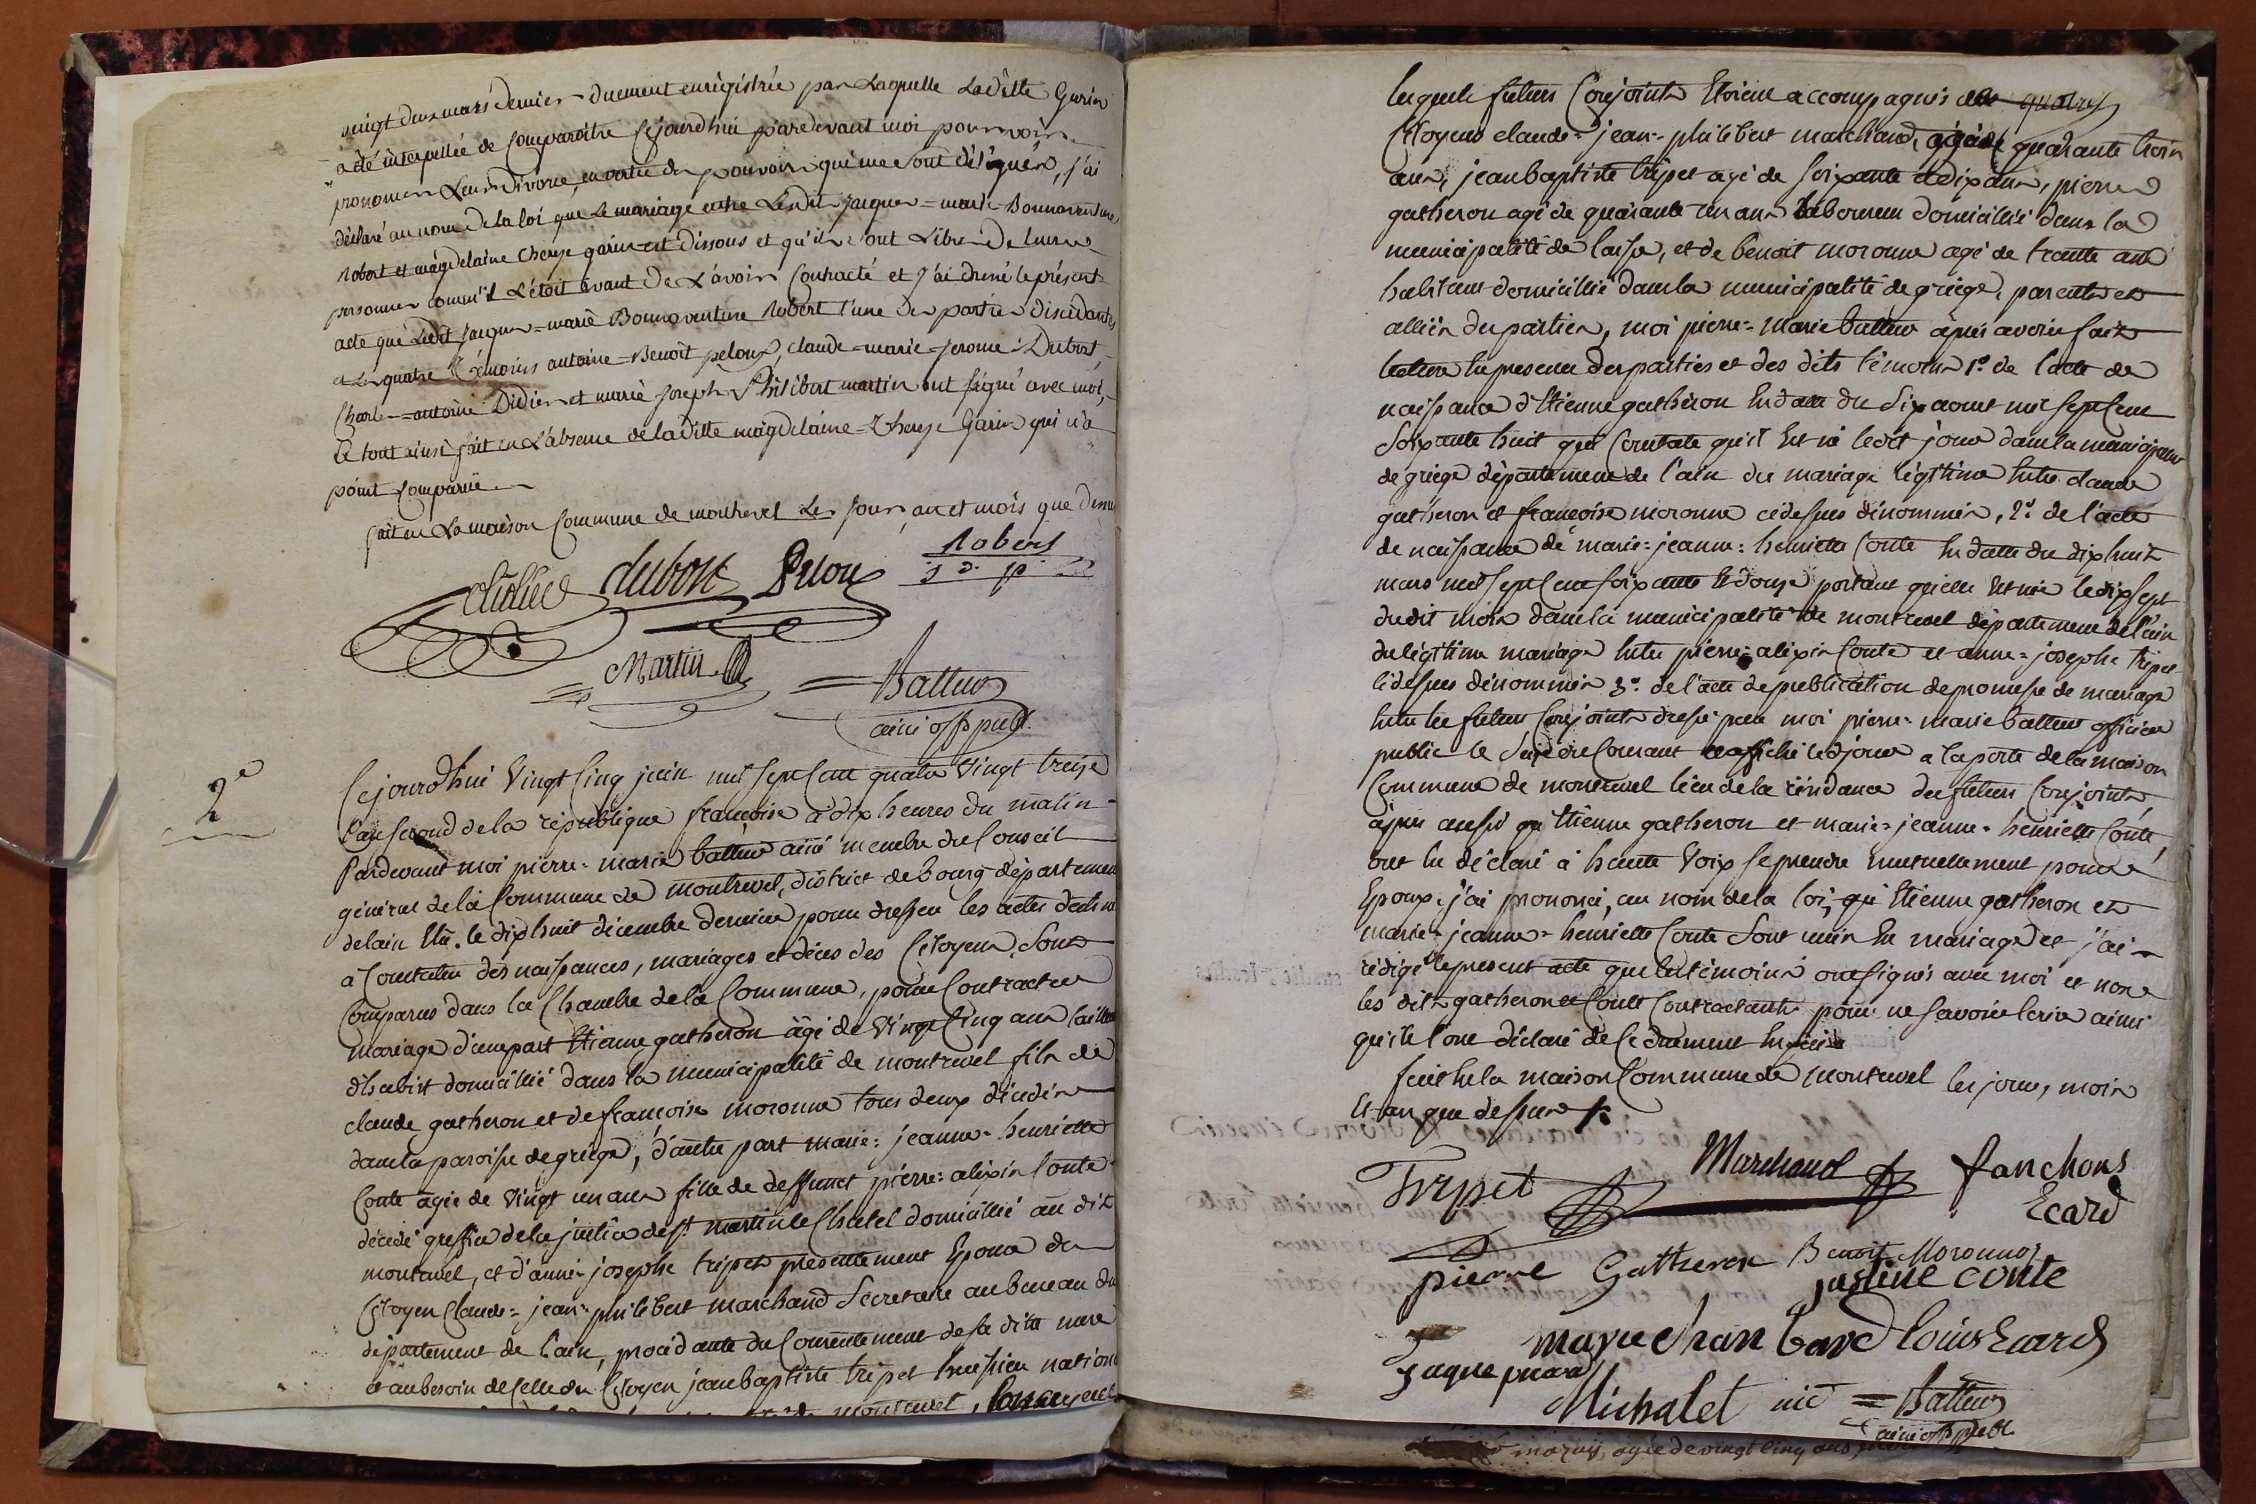 vingt deux mars dernier duement enrégistrée par Laquelle Laditte Garin
a été interpellée de Comparoitre Cejourdhui pardevant moi pour voir
prononcer Leur divorce, en vertu des pouvoirs qui me sont délégués, j'ai
déclaré au nom de la loi que Le mariage entre Ledit Jacques = marie Bonnaventure
Robert et magdelaine Therese garin est dissous et qu'ils sont Libres de Leurs
personnes comm'il L'étoit avant De L'avoir Contracté et j'ai dressé le présent
acte que Ledit Jacques = marie Bonnaventure Robert l'une des parties
et Les quatre Témoins antoine = Benoit peloux, claude = marie = jerome Dubost,
Charle = antoine Didier et marie Joseph Philibert martin ont signé avec moi,
Le tout ainsi fait en L'absence de laditte magdelaine = Therese Garin qui n'a
point Comparue
fait en La maison Commune de montrevel Les Jour, an et mois que dessus
Robert
j. d. p.
dubost
Martin
Batteur
ainé off publ.
2e
Cejourd'hui Vingt Cinq juin mil sept Cent quatre Vingt treize
l'an Second de la république françoise à dix heures du matin
Pardevant moi pierre = marie batteur ainé membre du Conseil
général de la Commune de montrevel, district de bourg département
de lain Elu le dix huit décembre dernier pour dresser les actes destinés
a Constater des naissances, mariages et décès des Citoyens, Sont
Comparus dans la Chambre de la Commune, pour Contracter
mariage d'une part Etienne gatheron âgé de Vingt Cinq ans tailleur
d'habist domicillié dans la municipalité de montrevel fils de
claude gatheron et de françoise moronne tous deux décédés
dans la paroisse de griege, d'autre part marie = jeanne = henriette
Conte agée de vingt un ans fille de deffunct pierre = alexis Conte
décédé greffier de la justice de St martin le Chatel domicillié au dit
montrevel, et d'anne = josephe tripet présentement Epouse du
Citoyen Claude = jean = philibert marchand Secretaire au bureau du
département de l'ain, procédante du Consentement de sa ditte mere
et au besoin de Celle du Citoyen jean baptiste tripet
montrevel,
lesquels futurs Conjoints Etoient accompagnés de quatre
Citoyens claude = jean = philibert marchand, agé de quarante trois
ans, jean baptiste tripet agé de soixante et dix ans, pierre
gatheron agé de quarante un ans laboureur domicillié dans la
municipalité de laisse, et de benoit moronne agé de trente ans
habitant domicillié dans la municipalité de griege, parents et
alliés des parties, moi pierre = marie batteur après avoir fait
lecture En presence des parties et des dits témoins 1o. de l'acte de
naissance d'Etienne gatheron En date du Six aout mil sept Cent
Soixante huit qui Constate qu'il Est né ledit jour dans la municipalité
de griege département de l'ain du mariage légitime Entre claude
gatheron et françoise moronne cidessus dénommés, 2o. de l'acte
de naissance de marie = jeanne = henriette Conte En datte du dix huit
mars mil sept Cent soixante Et douze portant qu'elle Est née le dix sept
dudit mois dans la municipalité de montrevel département de l'ain
du légitime mariage Entre pierre = alexis Conte et anne = josephe tripet
cidessus dénommés 3o. de l'acte de publication de promesse de mariage
Entre les futurs Conjoints dressé par moi pierre = marie batteur officier
public le Seize du Courant et affiché led jour a la porte de la maison
Commune de montrevel lieu de la résidance des futurs Conjoints,
après aussi qu'Etienne gatheron et marie = jeanne = henriette Conte,
ont Eu déclaré à haute Voix se prendre mutuellement pour
Epoux, j'ai prononcé, au nom de la loi, qu'Etienne gatheron et
marie = jeanne = henriette Conte Sont unis En mariage et j'ai
rédigé le present acte que les témoins ont signés avec moi et non
les dits gatheron et Conte Contractants pour ne savoir Ecrire ainsi
qu'ils l'ont déclaré de ce duement Enquis
fait En la maison Commune de montrevel les jour, mois
Et an que dessus
Tripet
Marchand
fanchons
Ecard
pierre Gatheron
Benoit Moronnoz
justine conte
louis Ecard
Jaque picard
Michalet nic
Batteur
ainé off publ.
agée de vingt Cinq ans